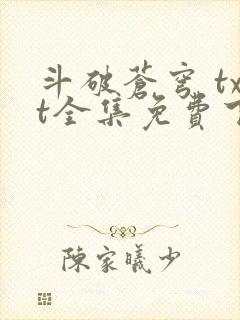 斗破蒼穹 tx
t全集免費下
陳家曦少